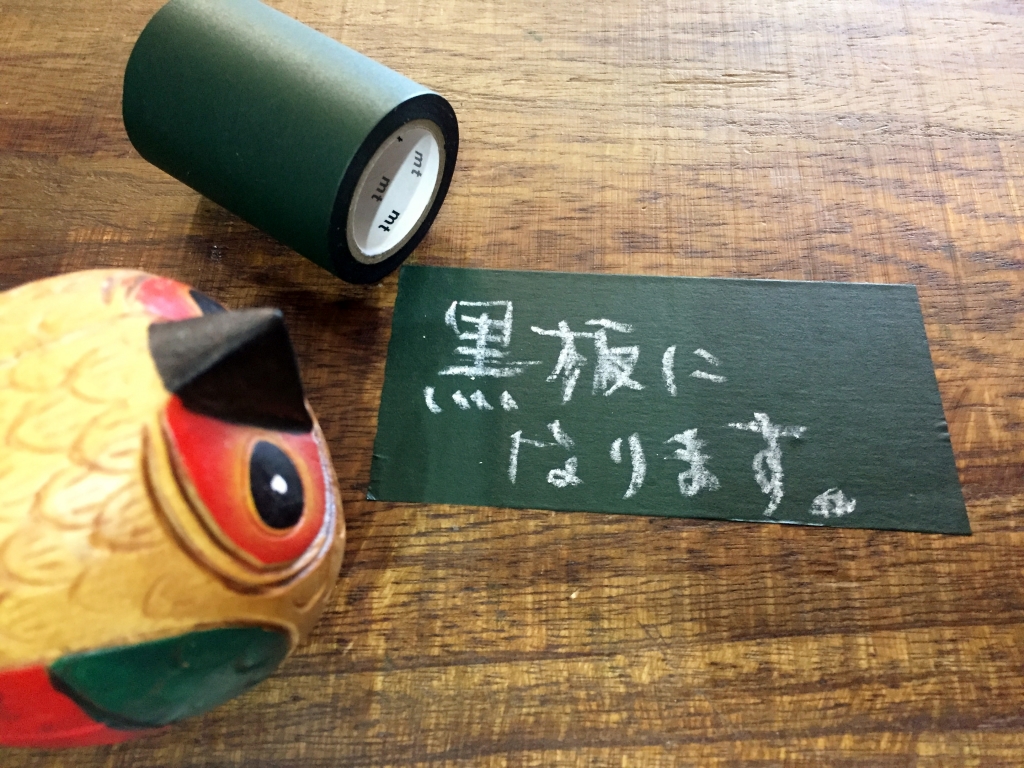 mt
mt
mt
黒板に
なります。